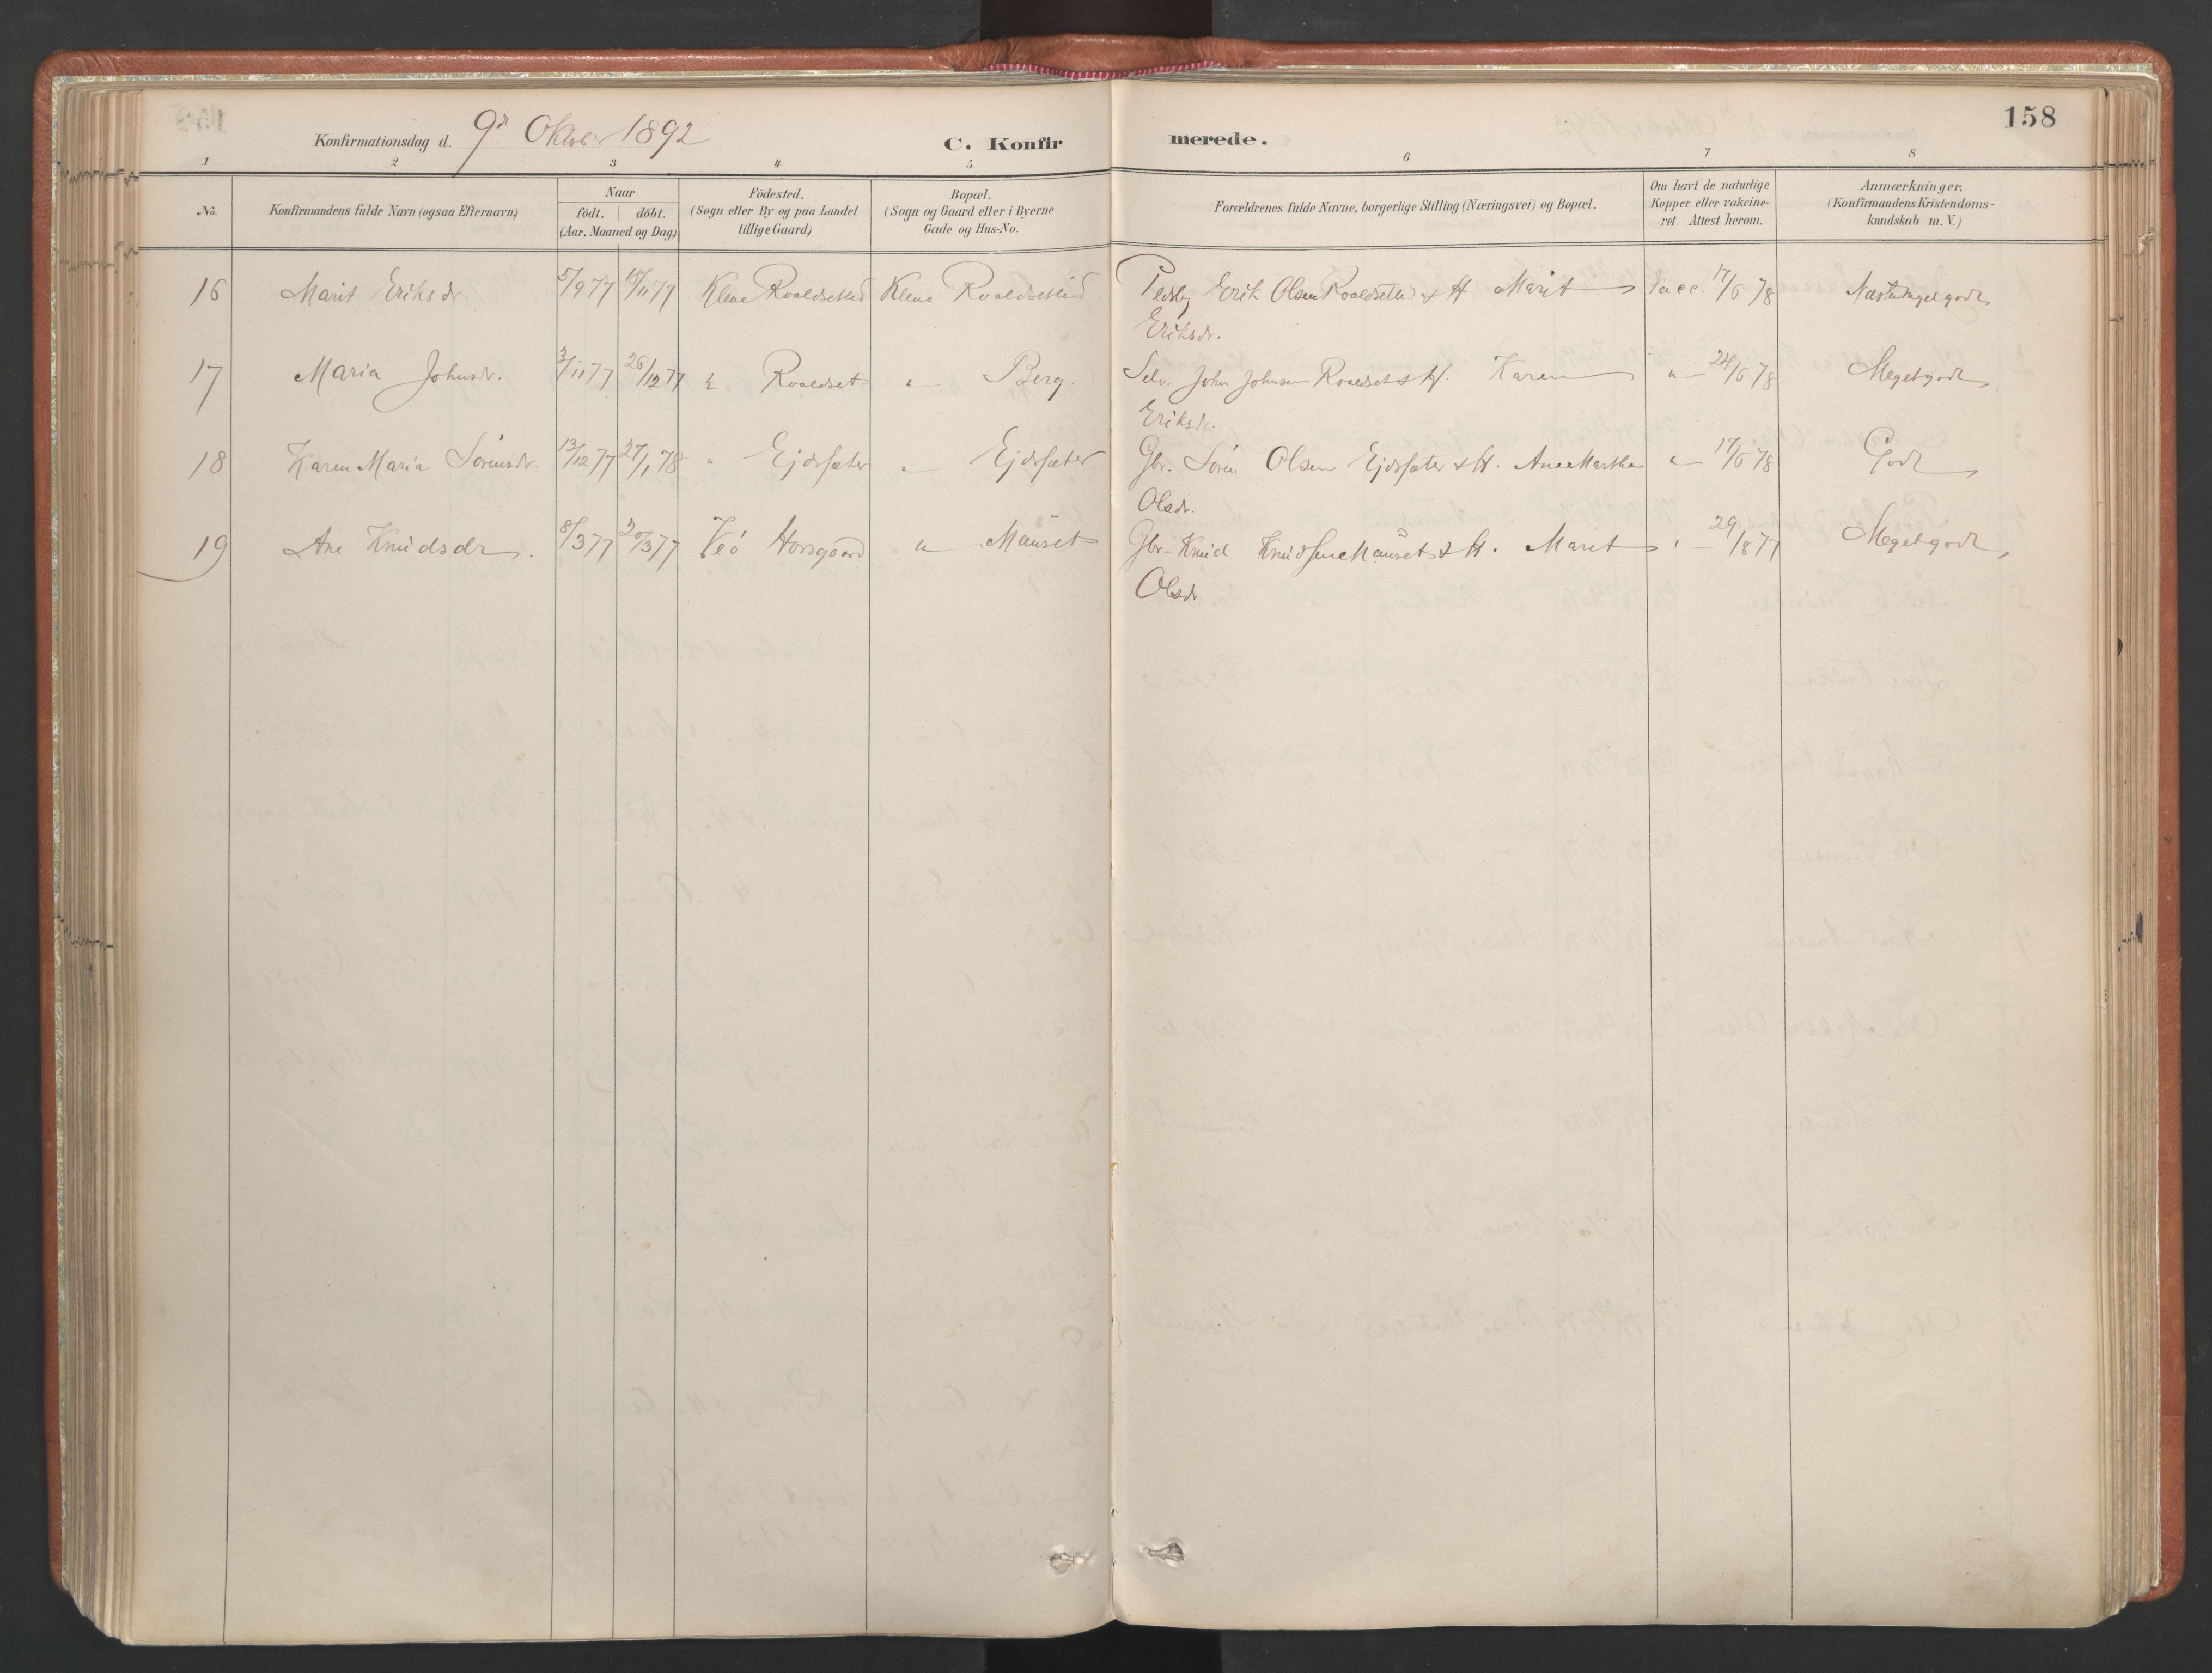 158
Konfirmationsdag d. 9de Oktober 1892
C. Konfirmerede.
1 2 3 4 5 6 7 8
No. Konfirmandens fulde Navn (ogsaa Efternavn) Naar födt. döbt. (Aar, Maaned og Dag) Födested. (Sogn eller By og paa Landet tillige Gaard) Bopæl. (Sogn og Gaard eller i Byerne Gade og Hus-No. Forældrenes fulde Navne, borgerlige Stilling (Næringsvei) og Bopæl. Om havt de naturlige Kopper eller vakcineret Attest herom. Anmærkninger. (Konfirmandens Kristendomskundskab m. V.)
16 Marit Eriksdr. 5/9 77 18/11 77 Kleve Roaldsetlid Kleve Roaldsetlid Erik Olsen Roaldsetlid & H Marit Vacc. 17/6 78 Næstmegetgodt
Eriksdr.
17 Maria Johnsdr. 3/11 77 26/12 77 " Roaldset " Berg. Selv. John Johnsen Roaldset & H. Karen " 24/6 78 Megetgodt
Eriksdr.
18 Karen Maria Sörensdr. 13/12 77 27/1 78 " Ejdsæter " Ejdsæter Gbr. Sören Olsen Ejdsæter & H. Ane Martha " 17/6 78 Godt
Olsdr.
19 Ane Knudsdr. 8/3 77 30/3 77 Veö Horsgaard " Mauset Gbr. Knud Knudsen Mauset & H. Marit " 29/8 77 Megetgodt,
Olsdr